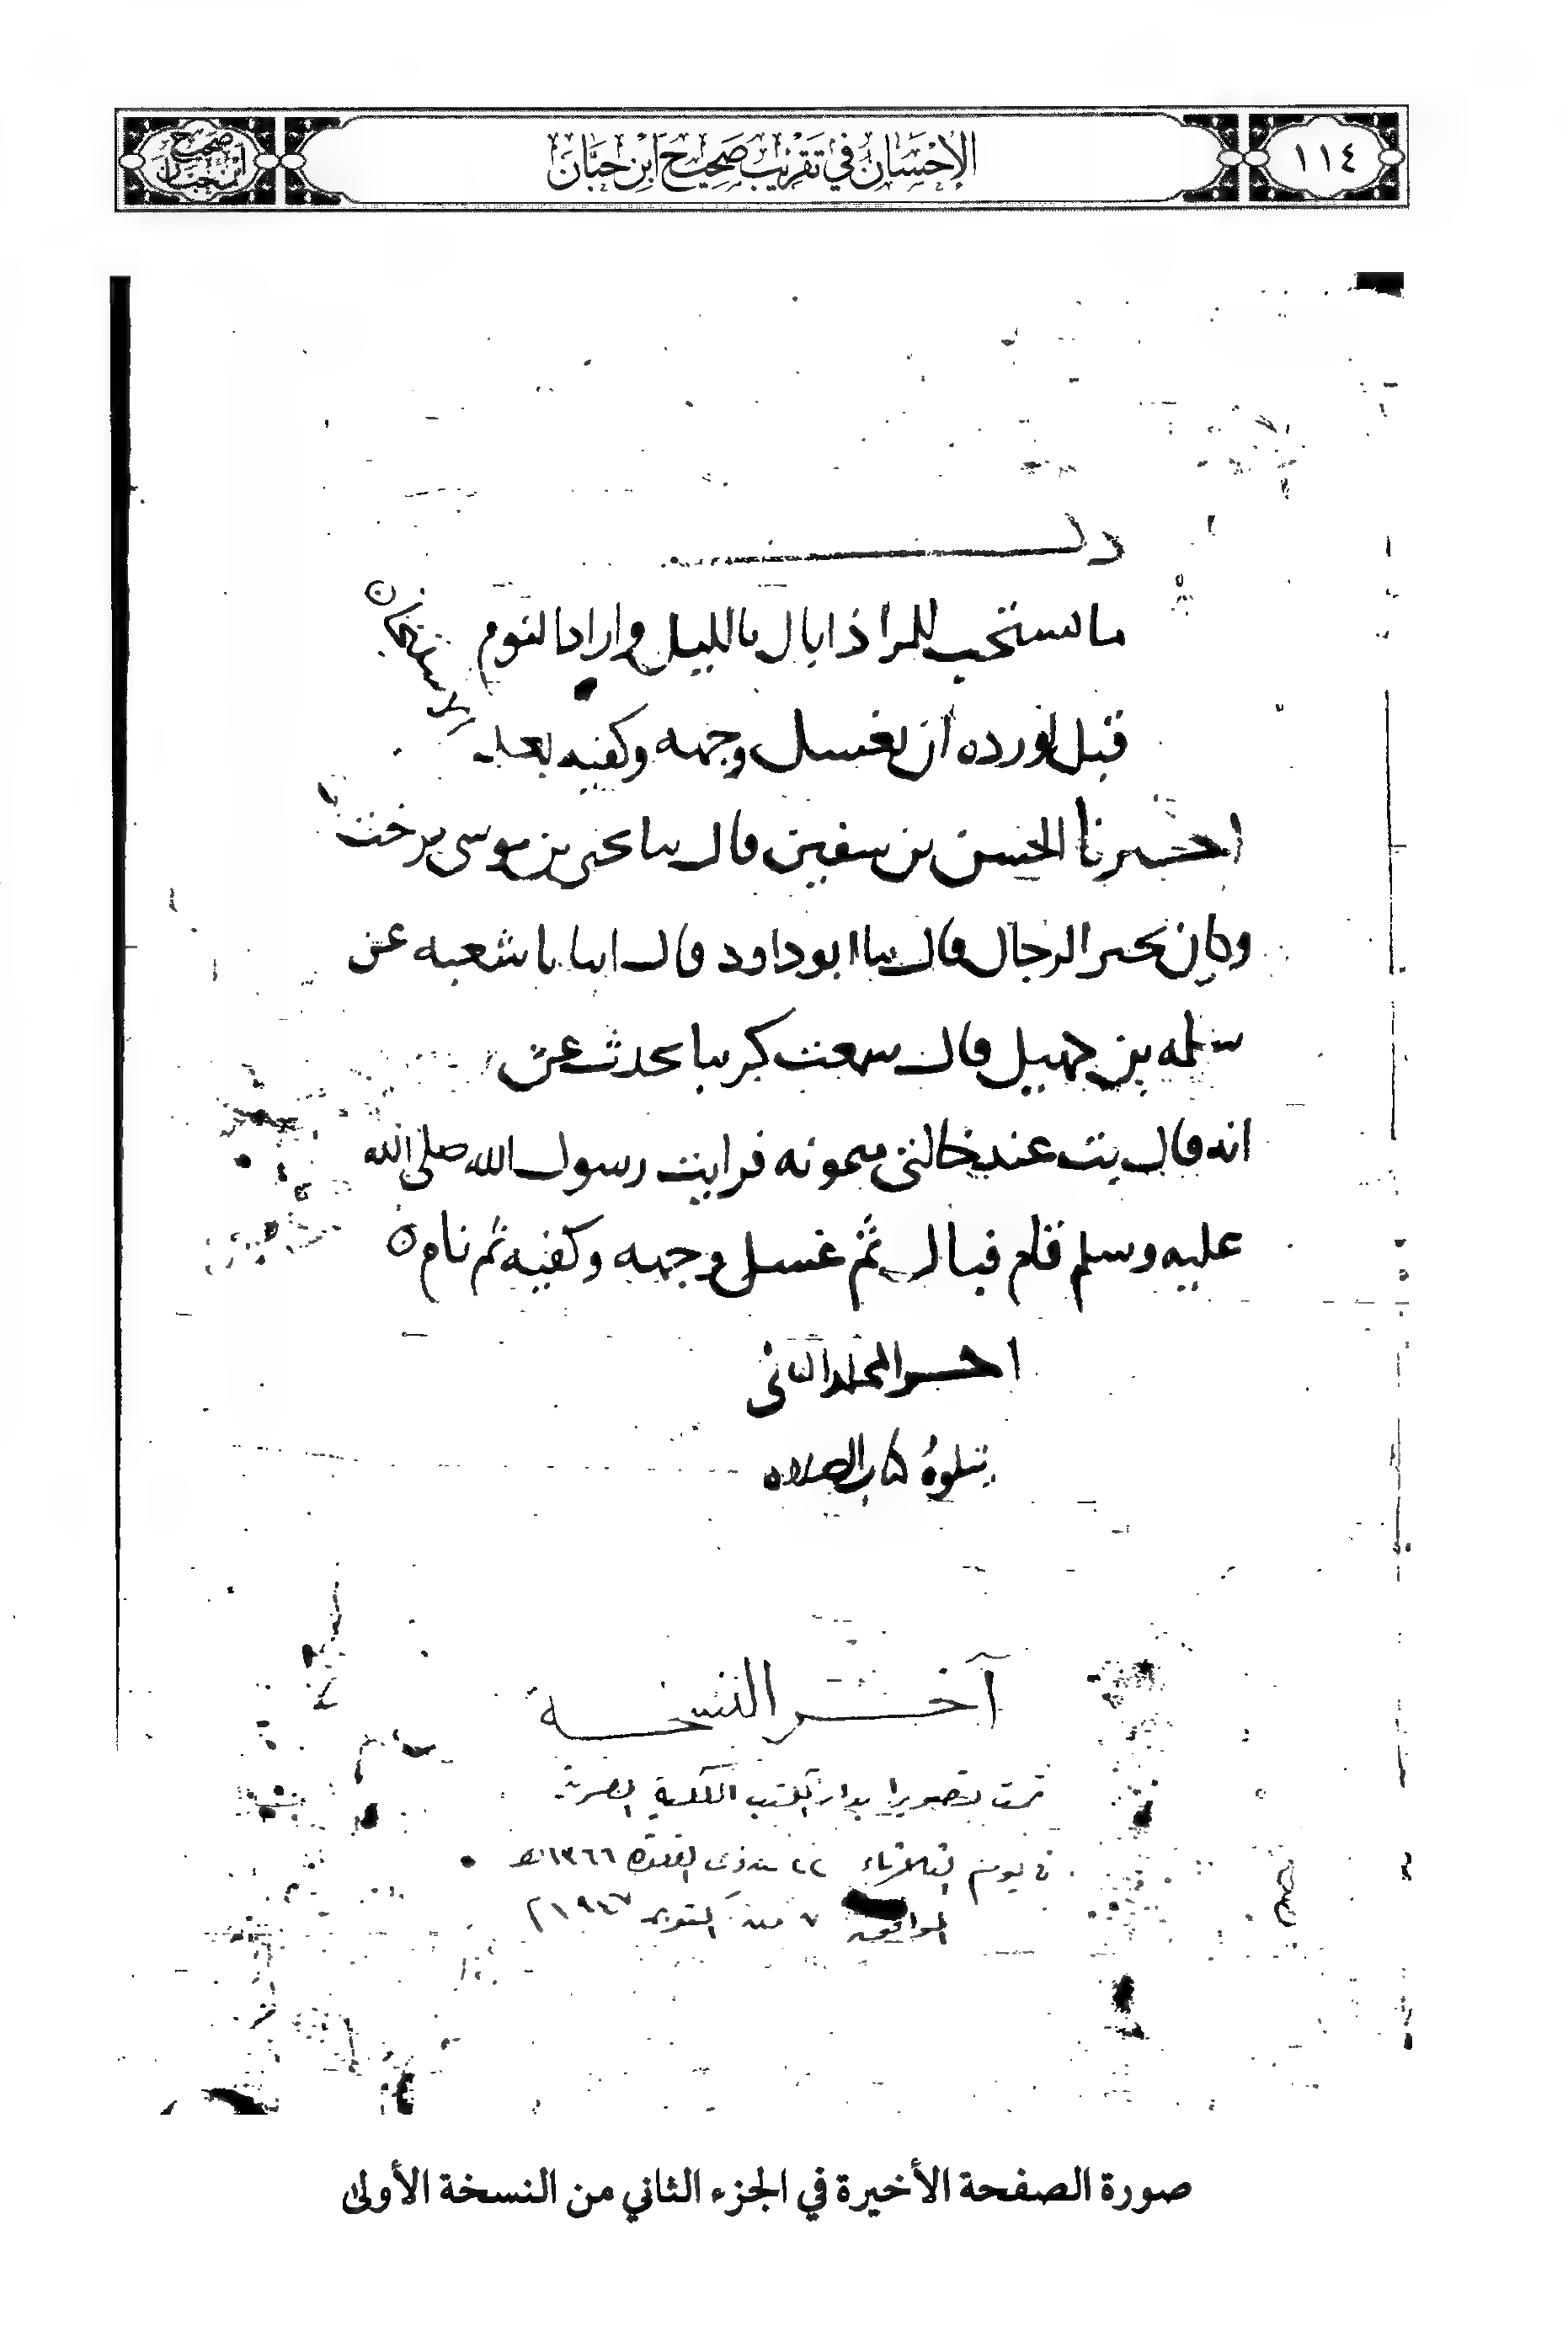 ١١٤
الإحسان في تقريب صحيح ابن حبان
صحيح ابن حبان
ذكر
ما يستحب للمرء اذا بال بالليل واراد النوم
قبل لورده ان يغسل وجهه وكفيه بعد
الاستنجان
اخبرنا الحسن بن سفين قال سا يحيى بن موسى بن خت
وكان بخير الرجال قال سا ابو داود قال اسا نا شعبه عن
سلمه بن كهيل قال سمعت كريبا يحدث عن
انه قال بت عند خالتي ميمونه فرايت رسول الله صلى الله
عليه وسلم قام فبال ثم غسل وجهه وكفيه ثم نام
اخر المجلد الثاني
يتلوه كتاب الصلاه
آخر النسخة
تمت تصويرا بدار الكتب الملكية المصرية
في يوم الثلاثاء ٢٢ من ذى القعدة ١٣٦٦ هـ
الموافق ٧ من اكتوبر ١٩٤٧ م
صورة الصفحة الأخيرة في الجزء الثاني من النسخة الأولى